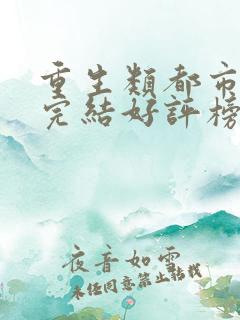 重生類都市
完結好評榜
夜音如雲
未經同意禁止轉載